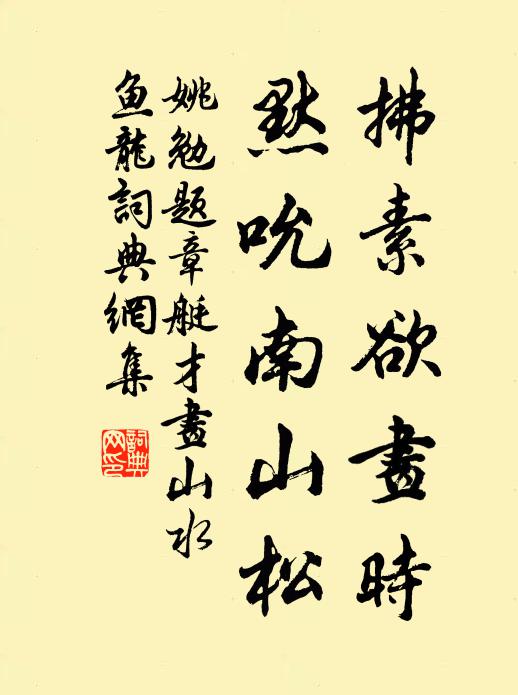 拂素欲畫時
默吮南山松
姚勉題章艇才畫山水
魚龍詞典網集
詞典
网印